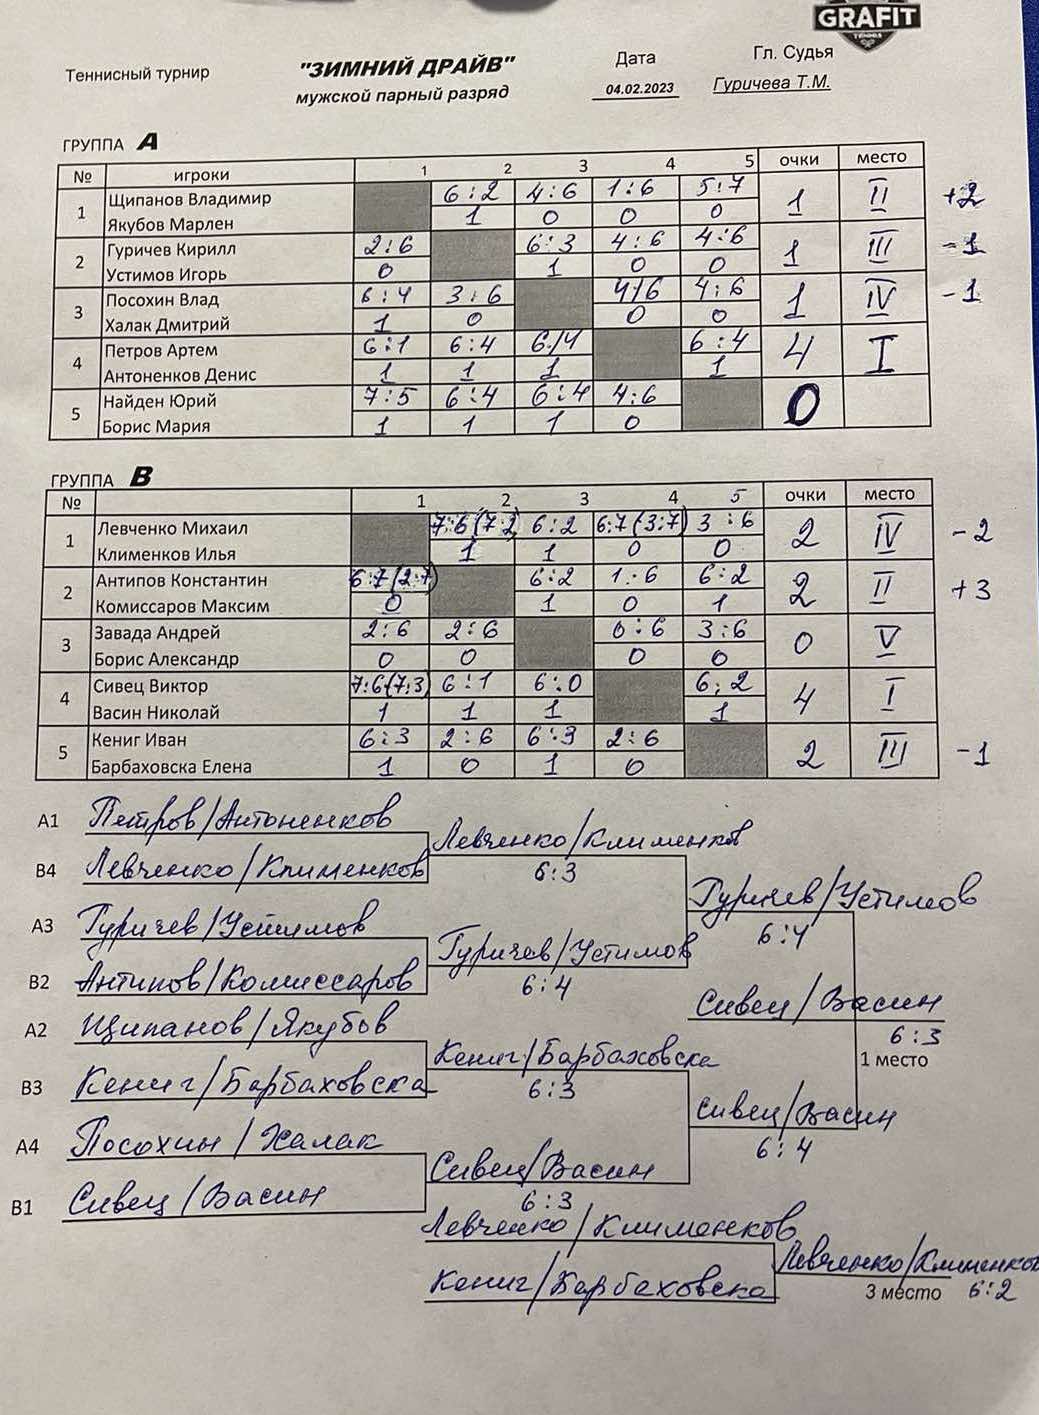 GRAFIT
ТЕННИС
Теннисный турнир "ЗИМНИЙ ДРАЙВ" Дата Гл. Судья
мужской парный разряд 04.02.2023 Гуричева Т.М.
ГРУППА A
№ игроки 1 2 3 4 5 очки место
1 Щипанов Владимир 6:2 4:6 1:6 5:7 1 II +2
Якубов Марлен 1 0 0 0
2 Гуричев Кирилл 2:6 6:3 4:6 4:6 1 III -1
Устимов Игорь 0 1 0 0
3 Посохин Влад 6:4 3:6 4/6 4:6 1 IV -1
Халак Дмитрий 1 0 0 0
4 Петров Артем 6:1 6:4 6/4 6:4 4 I
Антоненков Денис 1 1 1 1
5 Найден Юрий 7:5 6:4 6:4 4:6 0
Борис Мария 1 1 1 0
ГРУППА B
№ 1 2 3 4 5 очки место
1 Левченко Михаил 7:6(7:2) 6:2 6:7(3:7) 3:6 2 IV -2
Клименков Илья 1 1 0 0
2 Антипов Константин 6:7(2:7) 6:2 1:6 6:2 2 II +3
Комиссаров Максим 0 1 0 1
3 Завада Андрей 2:6 2:6 0:6 3:6 0 V
Борис Александр 0 0 0 0
4 Сивец Виктор 7:6(7:3) 6:1 6:0 6:2 4 I
Васин Николай 1 1 1 1
5 Кениг Иван 6:3 2:6 6:3 2:6 2 III -1
Барбаховска Елена 1 0 1 0
A1 Петров/Антоненков
Левченко/Клименков
B4 Левченко/Клименков 6:3
Гуричев/Устимов
A3 Гуричев/Устимов 6:4
Гуричев/Устимов
B2 Антипов/Комиссаров 6:4
Сивец/Васин
A2 Щипанов/Якубов 6:3
Кениг/Барбаховска 1 место
B3 Кениг/Барбаховска 6:3
Сивец/Васин
A4 Посохин/Халак 6:4
Сивец/Васин
B1 Сивец/Васин 6:3
Левченко/Клименков
Левченко/Клименков
Кениг/Барбаховска 3 место 6:2